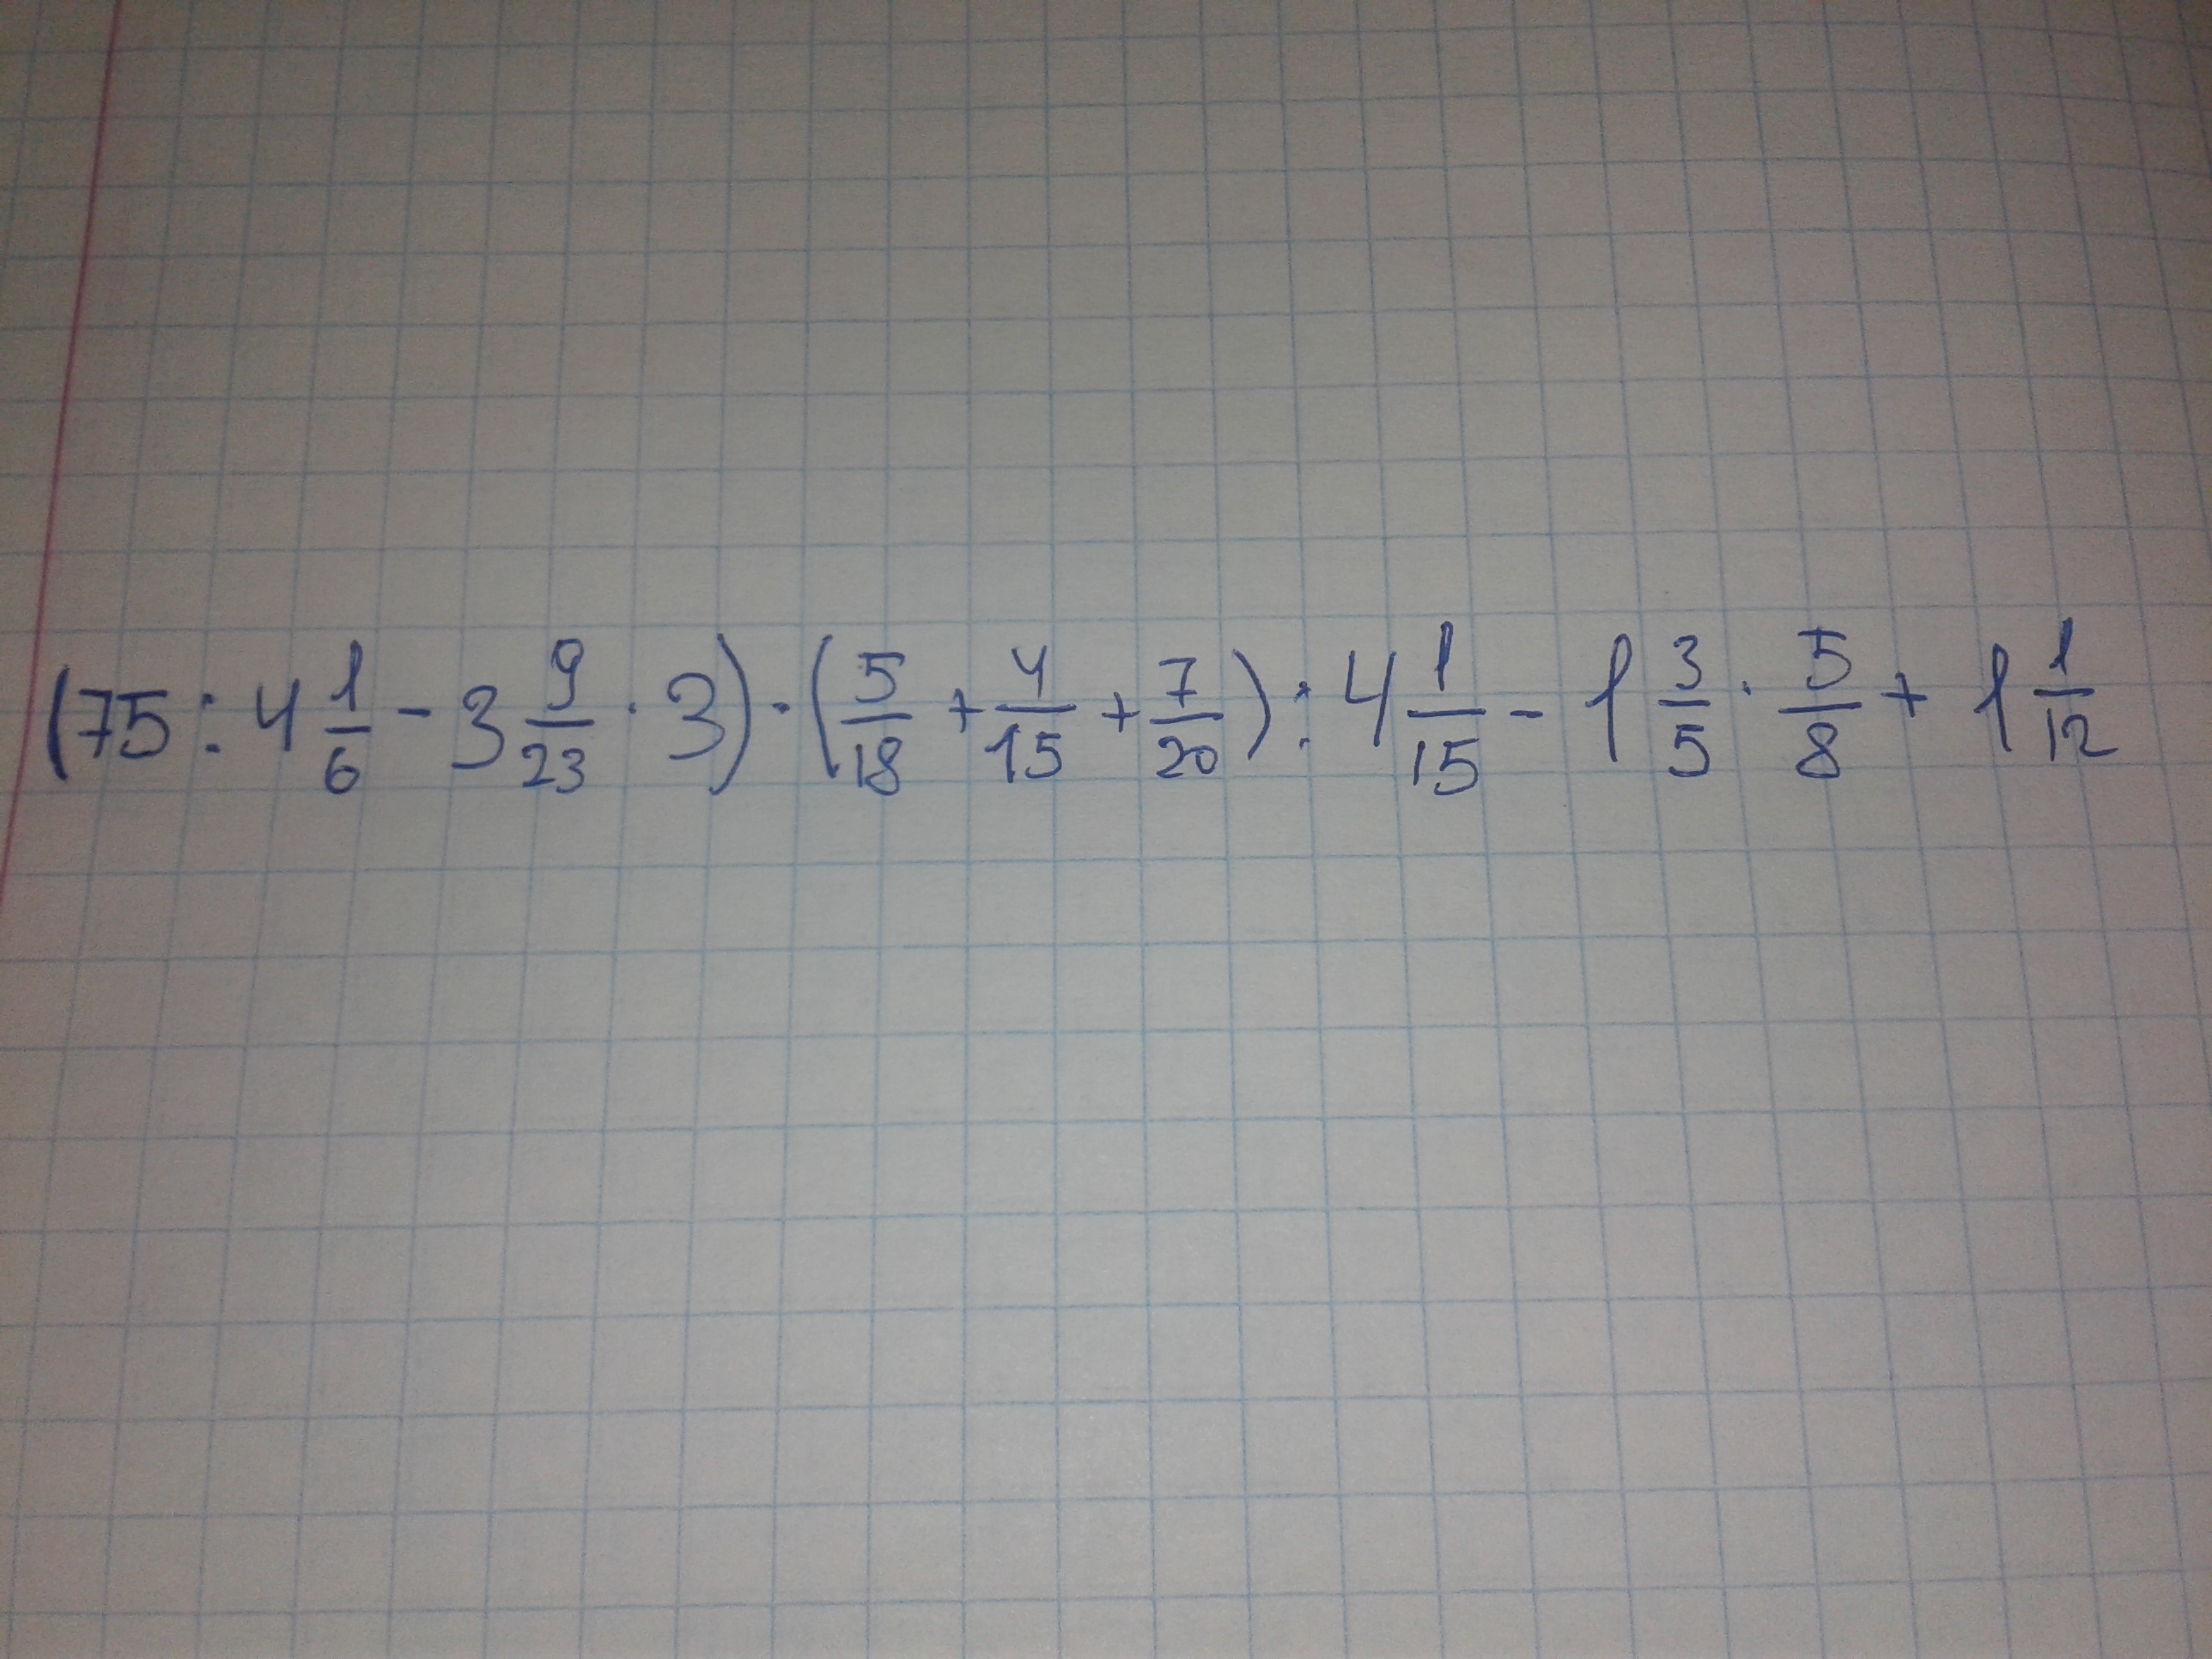 (75 : 4 1/6 - 3 9/23 · 3) · (5/18 + 4/15 + 7/20) : 4 1/15 - 1 3/5 · 5/8 + 1 1/12